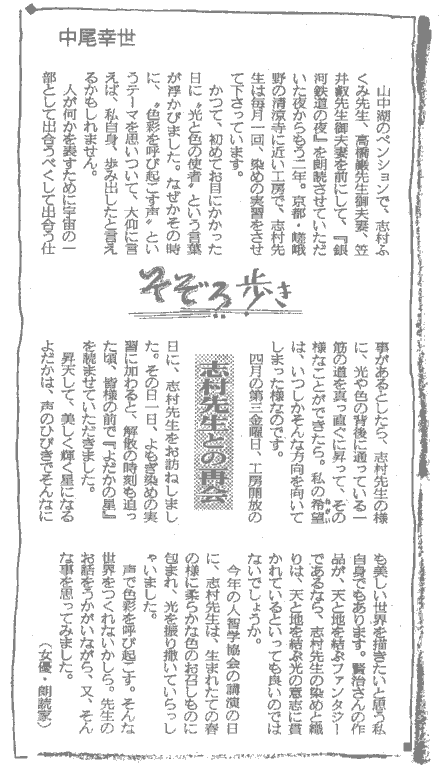 中尾幸世
そぞろ歩き
志村先生との出会
山中湖のペンションで、志村ふ
くみ先生、高橋巌先生御夫妻、笠
井叡先生御夫妻を前にして、『銀
河鉄道の夜』を朗読させていただ
いた夜からもう二年。京都・嵯峨
野の清涼寺に近い工房で、志村先
生は毎月一回、染めの実習をさせ
て下さっています。
かつて、初めてお目にかかった
日に〝光と色の使者〟という言葉
が浮かびました。なぜかその時
に、〝色彩を呼び起こす声〟とい
うテーマを思いついて、大仰に言
えば、私自身、歩み出したと言え
るかもしれません。
人が何かを表すために宇宙の一
部として出合うべくして出合う仕
事があるとしたら、志村先生の様
に、光や色の背後に通っている一
筋の道を真っ直ぐに昇って、その
様なことができたら。私の希望
は、いつしかそんな方向を向いて
しまった様なのです。
四月の第三金曜日、工房開放の
日に、志村先生をお訪ねしまし
た。その日一日、よもぎ染めの実
習に加わると、解散の時刻も迫っ
た頃、皆様の前で『よだかの星』
を読ませていただきました。
昇天して、美しく輝く星になる
よだかは、声のひびきでそんなに
も美しい世界を描きたいと思う私
自身でもあります。賢治さんの作
品が、天と地を結ぶファンタジー
であるなら、志村先生の染めと織
りは、天と地を結ぶ光の意志に貫
かれているといっても良いのでは
ないでしょうか。
今年の人智学協会の講演の日
に、志村先生は、生まれたての春
の様に柔らかな色のお召しものに
包まれ、光を振り撒いていらっし
ゃいました。
声で色彩を呼び起こす。そんな
世界をつくれないかしら。先生の
お話をうかがいながら、又、そん
な事を思ってみました。
（女優・朗読家）